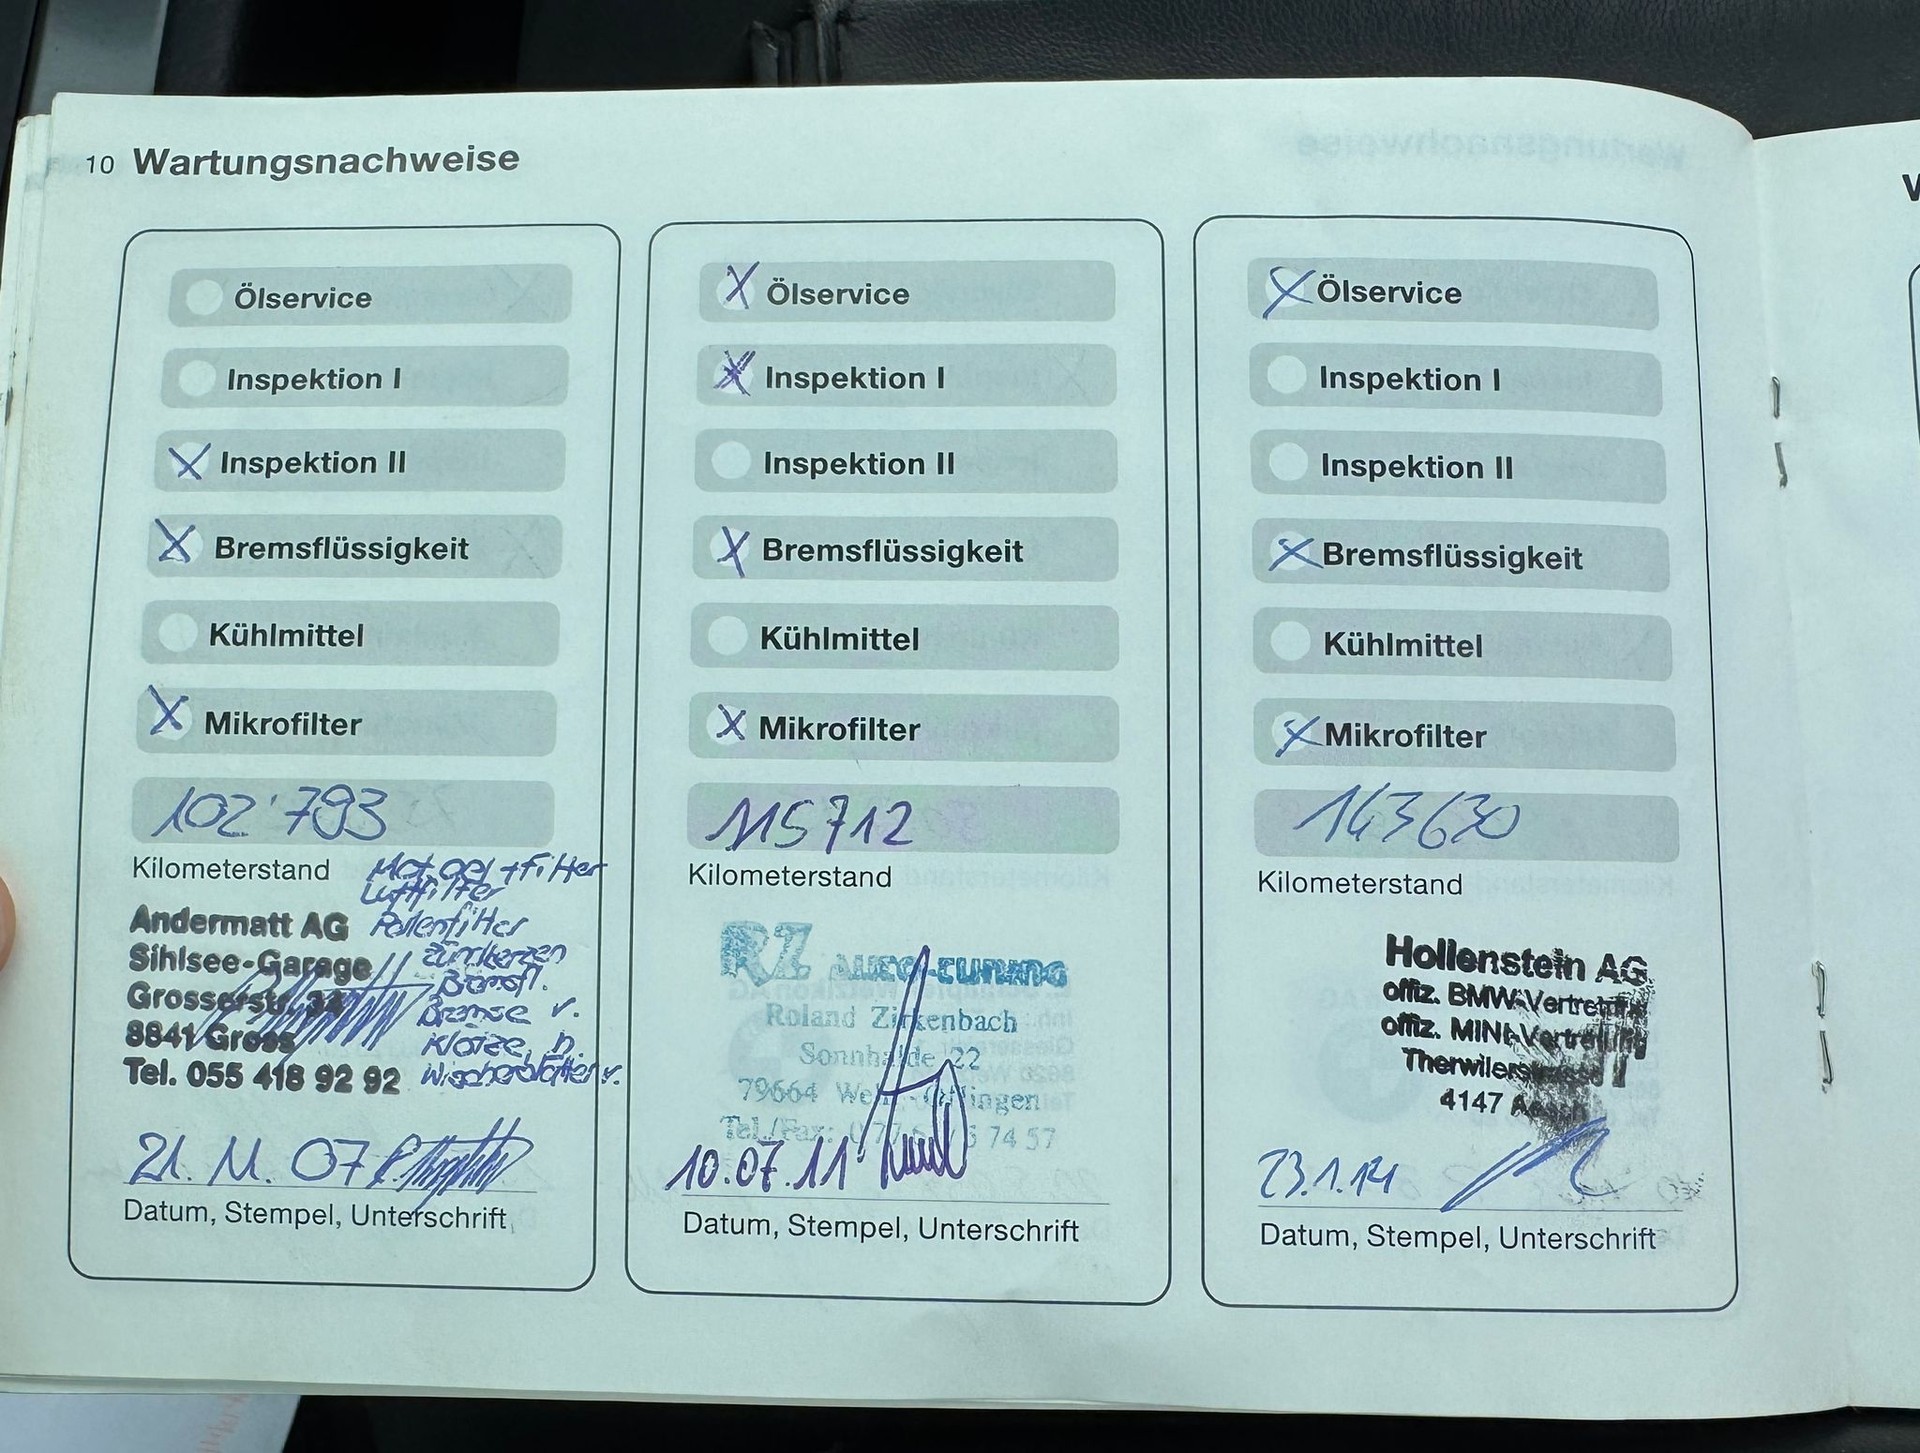 10 Wartungsnachweise
Ölservice
Inspektion I
X Inspektion II
X Bremsflüssigkeit
Kühlmittel
X Mikrofilter
102'793
Kilometerstand
Mot. oel + Filter
Luftfilter
Pollenfilter
Zündkerzen
Bremsfl.
Bremse v.
Klötze h.
Wischerblätter v.
Andermatt AG
Sihlsee-Garage
Grosserstr. 34
8841 Gross
Tel. 055 418 92 92
21. 11. 07
Datum, Stempel, Unterschrift
X Ölservice
X Inspektion I
Inspektion II
X Bremsflüssigkeit
Kühlmittel
X Mikrofilter
115712
Kilometerstand
RZ AUTO-TUNING
Roland Zirkenbach
Sonnhalde 22
79664 Wehr-Öflingen
Tel./Fax: 74 57
10.07.11
Datum, Stempel, Unterschrift
X Ölservice
Inspektion I
Inspektion II
X Bremsflüssigkeit
Kühlmittel
X Mikrofilter
143630
Kilometerstand
Hollenstein AG
offiz. BMW-Vertretung
offiz. MINI-Vertretung
Therwilerstrasse
4147 Aesch
23.1.14
Datum, Stempel, Unterschrift